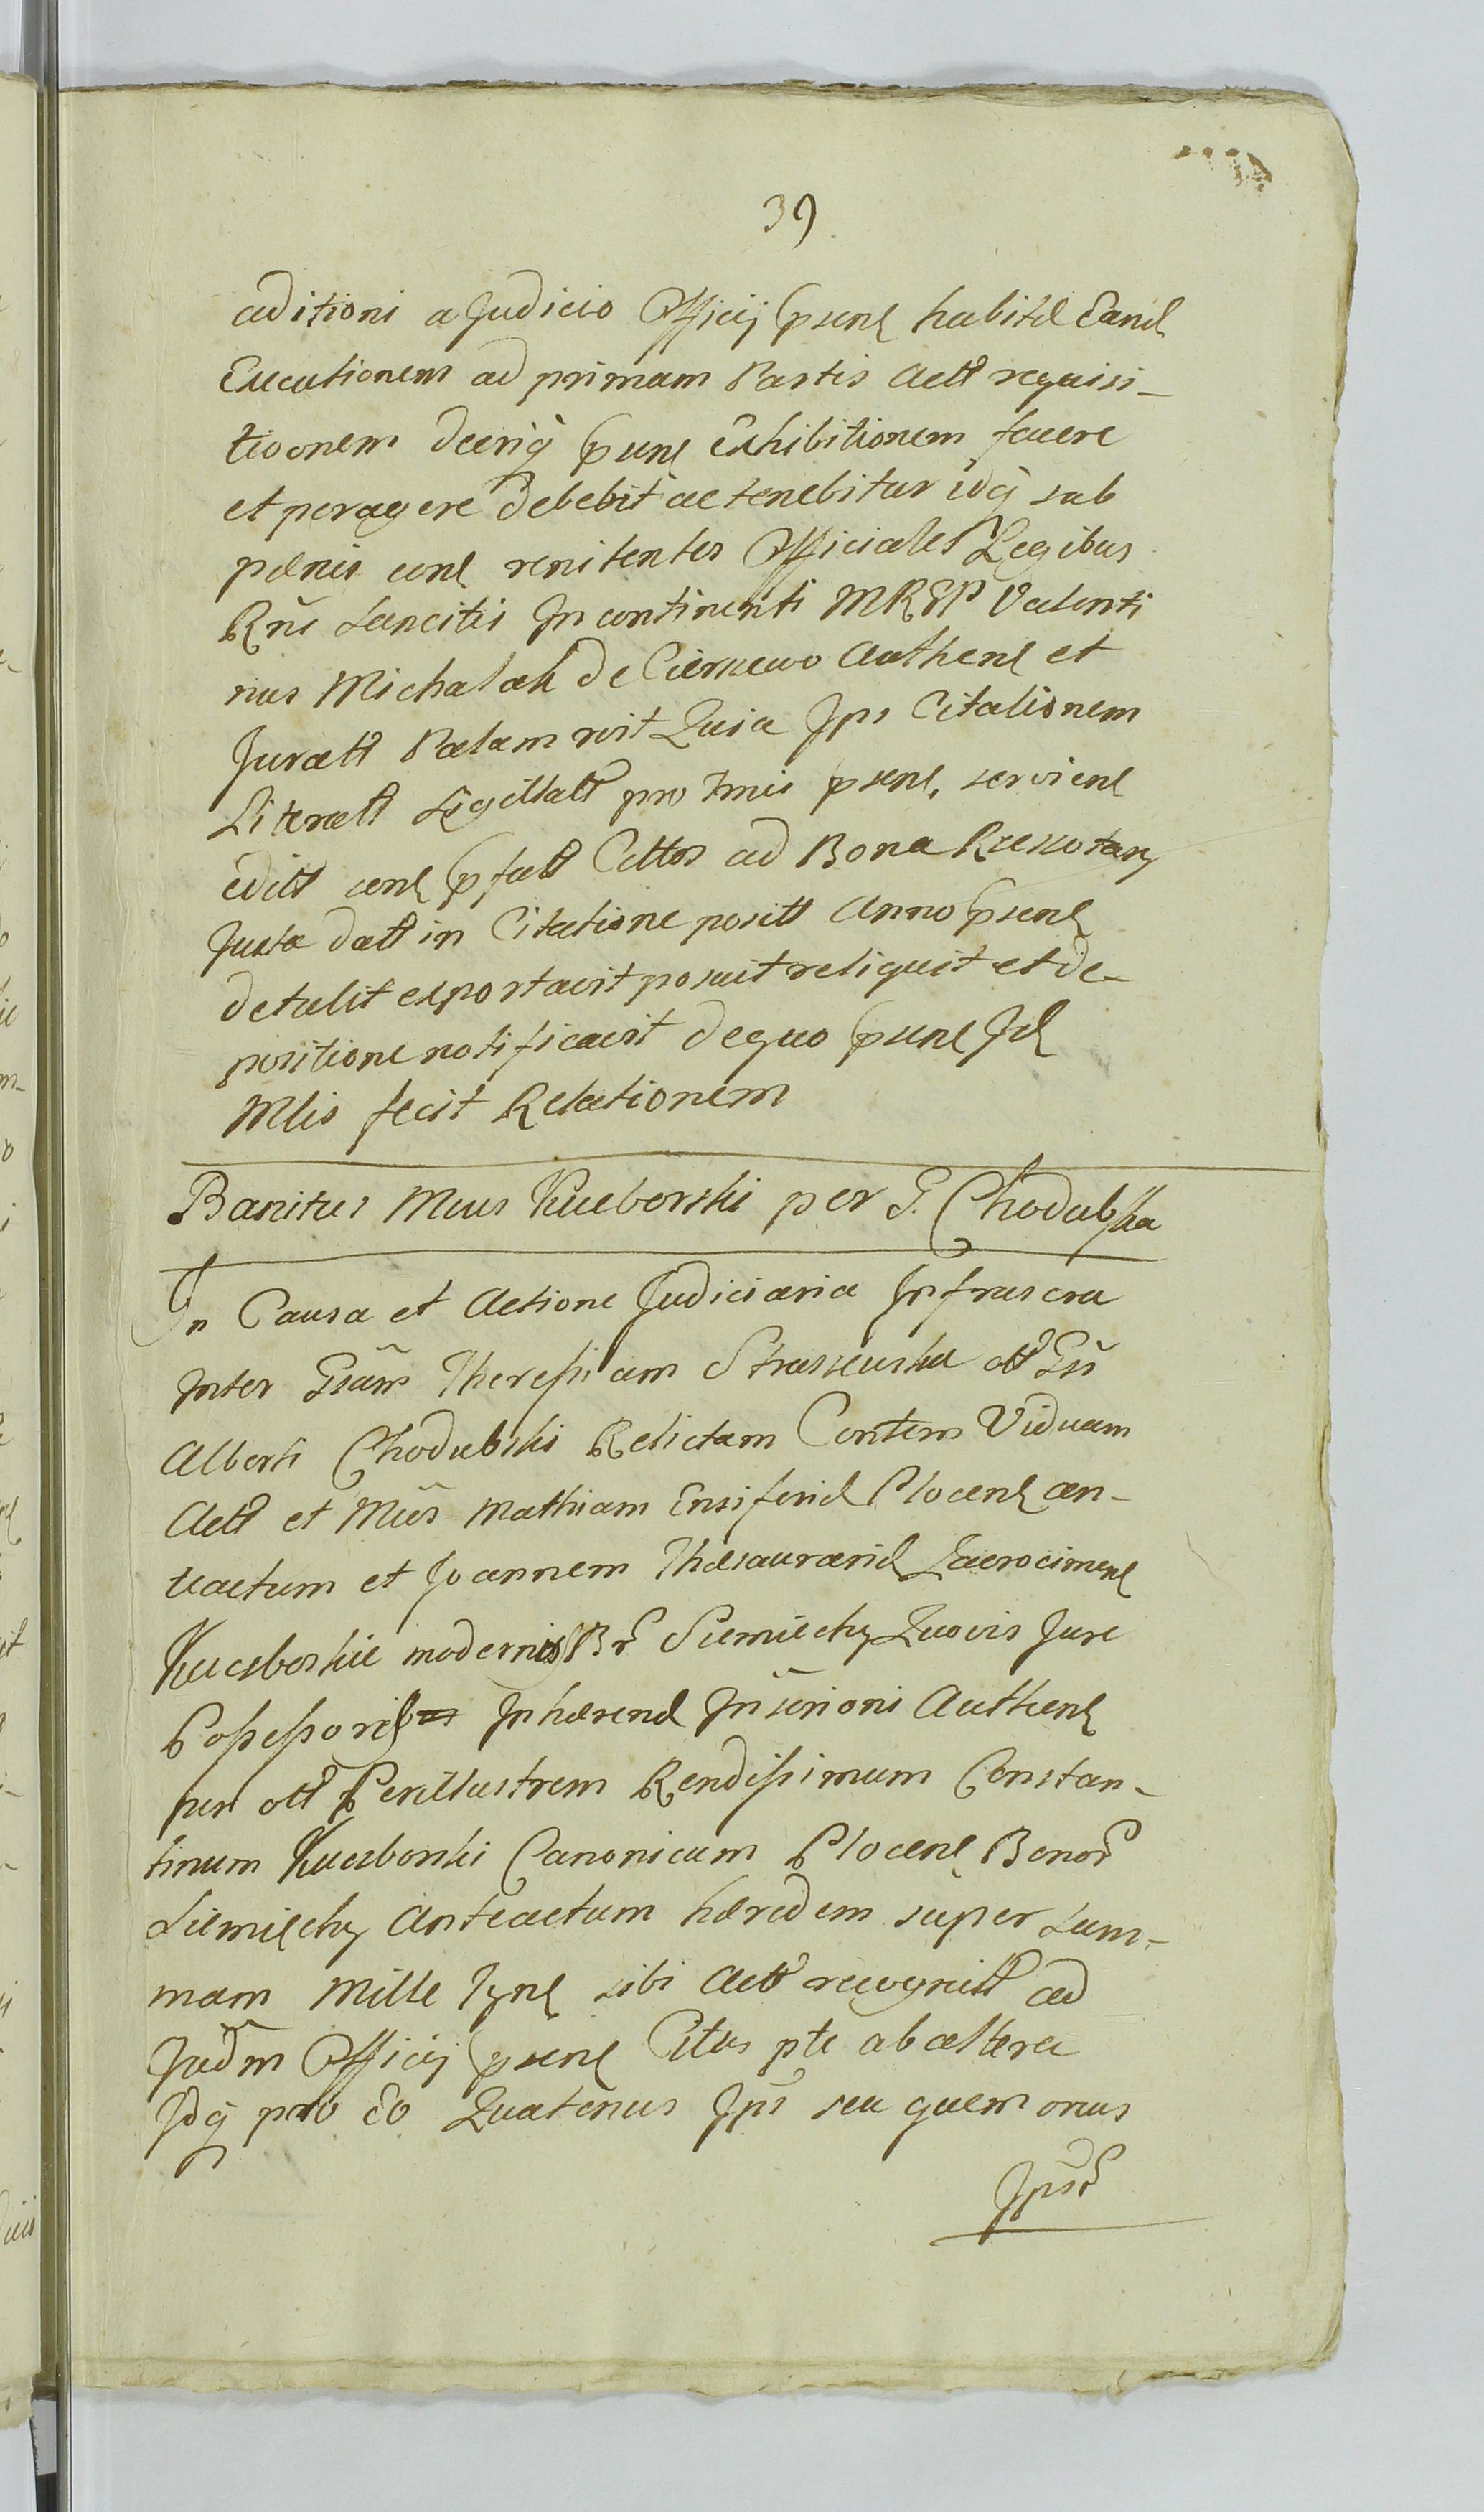 39
aditioni a Judicio Officij psens habitâ Eand
Executionem ad primam Partis Actt requisi-
tioonem Decrîq psens Exhibitionem facere
et peragere Debebit ac tenebitur idq sub
pœnis cons renitentes Officiales Legibus
Rni Sancitis In continenti MRGP Valenti
nus Michalak de Ciersзewo Authens et
Juratt Palam rvit Quia Ips Citationem
Literatt Sigillatt pro tmis psens serviens
editt cons pfatt Cittos ad Bona
Juxta datt in Citatione positt Anno psens
detulit exportavit posuit reliquit et de-
positione notificavit de quo psens Jd
Mlis fecit Relationem
Banitus Mcus Kucborski per G. Chodubska
In Causa et Actione Judiciaria Infrascra
Inter Gsam Theressiam Strasзewska ott Gsi
Alberti Chodubski Relictam Contem Viduam
Actt et Mcos Mathiam Ensiferid Plocens an-
teactum et Joannem Thesaurarid Zacrocimens
Kuczborskie modernos Br Siemiechy Quovis Jure
Possessores Inhærend Inscrioni Authens
per ott Perillustrem Rendissimum Constan-
tinum Kuczborski Canonicum Plocens Bonor
Siemiechy Anteactum hæredem super Sum-
mam Mille Tyns sibi Actt recognitt ad
Judm Officij psens Cittos pte ab altera
Idq pro Eo Quatenus Ipsi seu quem onus
Ipsor